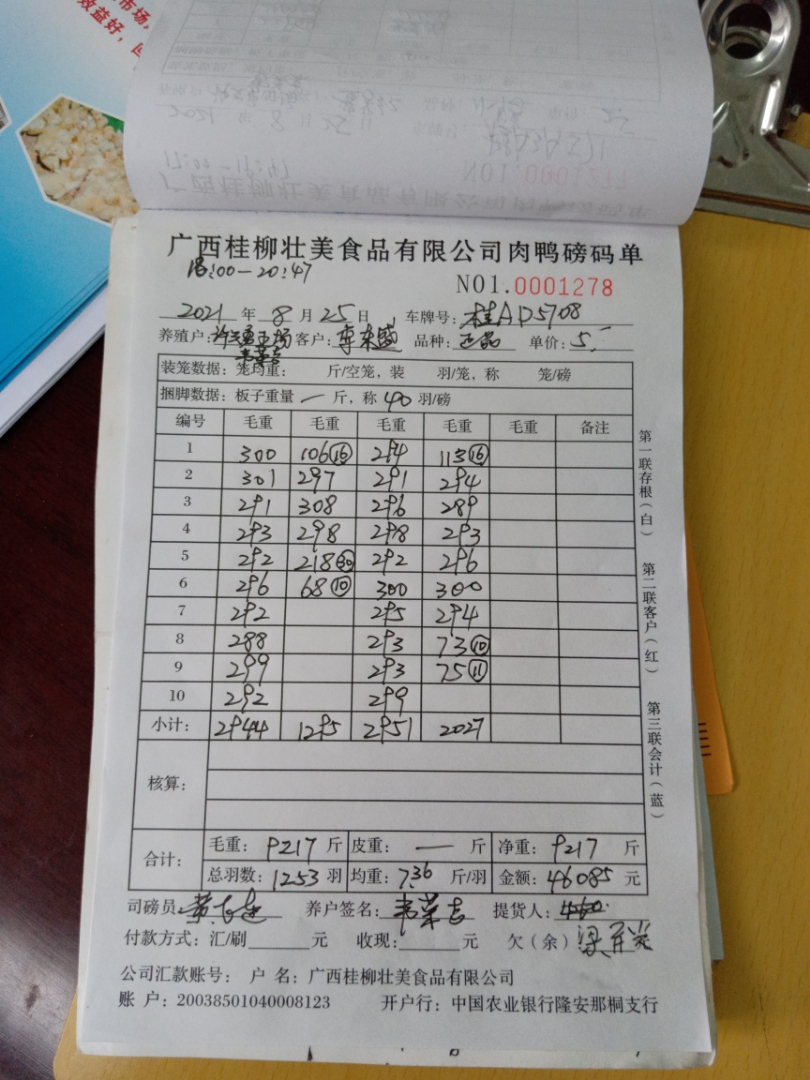 市场,
效益好,
广西桂柳壮美食品有限公司肉鸭磅码单
18:00—20:47
NO1.0001278
2021年8月25日 车牌号:桂AD5708
养殖户: 客户: 品种:正品 单价:5.
装笼数据:笼均重: 斤/空笼,装 羽/笼,称 笼/磅
捆脚数据:板子重量 一 斤,称 40 羽/磅
编号 毛重 毛重 毛重 毛重 毛重 备注
1 300 106⑯ 294 113⑯
2 301 297 291 294
3 291 308 296 289
4 293 298 298 293
5 292 218㉚ 292 296
6 296 68⑩ 300 300
7 292 295 294
8 288 293 73⑩
9 299 293 75⑪
10 292 299
小计: 2944 1295 2951 2027
核算:
合计: 毛重:9217斤 皮重:—斤 净重:9217斤
总羽数:1253羽 均重:7.36斤/羽 金额:46085元
司磅员: 养户签名:韦荣吉 提货人:
付款方式:汇/刷 元 收现: 元 欠(余)
公司汇款账号: 户 名:广西桂柳壮美食品有限公司
账 户:20038501040008123 开户行:中国农业银行隆安那桐支行
第一联存根(白)
第二联客户(红)
第三联会计(蓝)